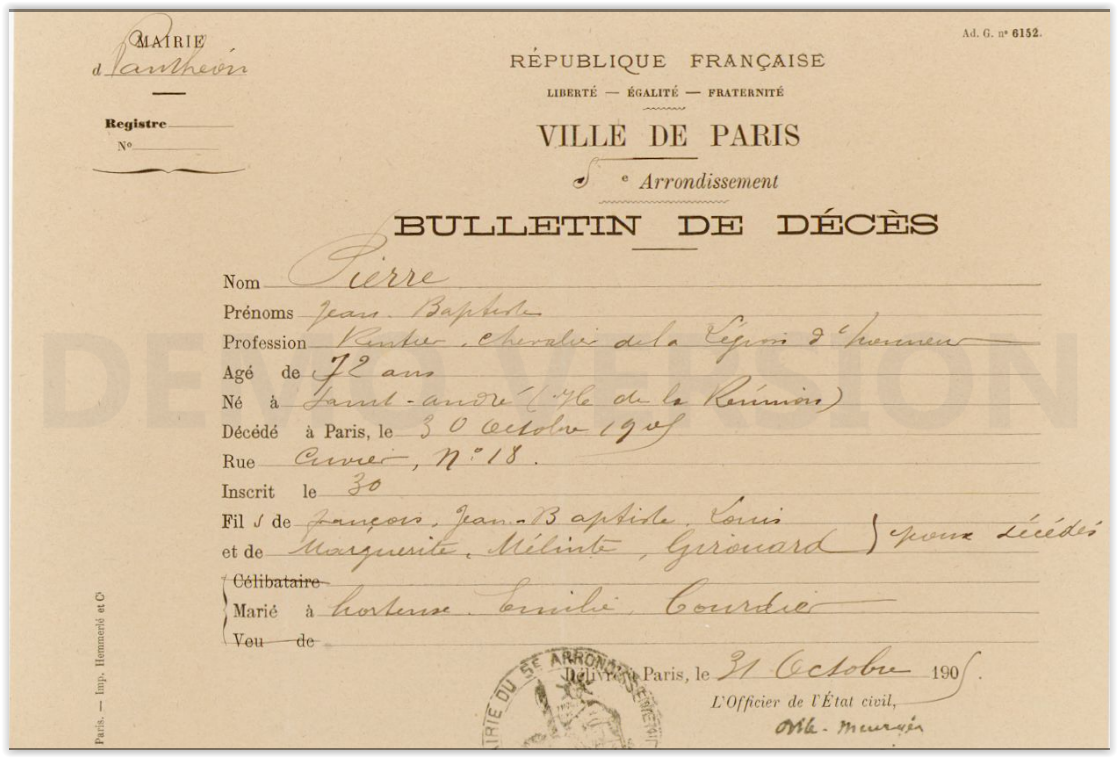 MAIRIE
d Panthéon
Registre
N°
Ad. G. n° 6152.
RÉPUBLIQUE FRANÇAISE
LIBERTÉ — ÉGALITÉ — FRATERNITÉ
VILLE DE PARIS
5e Arrondissement
BULLETIN DE DÉCÈS
Nom Pierre
Prénoms Jean-Baptiste
Profession Rentier, chevalier de la Légion d'honneur
Agé de 72 ans
Né à Saint-André (Ile de la Réunion)
Décédé à Paris, le 30 Octobre 1905
Rue Cuvier, N° 18.
Inscrit le 30
Fils de françois, Jean-Baptiste, Louis
et de Marguerite, Mélinte, Girouard } décédés
Célibataire
Marié à hortense Emilie Courdier
Veu de
Délivré à Paris, le 31 Octobre 1905.
L'Officier de l'État civil,
MAIRIE DU 5E ARRONDISSEMENT
Paris. — Imp. Hemmerlé et Cie
DEMO VERSION